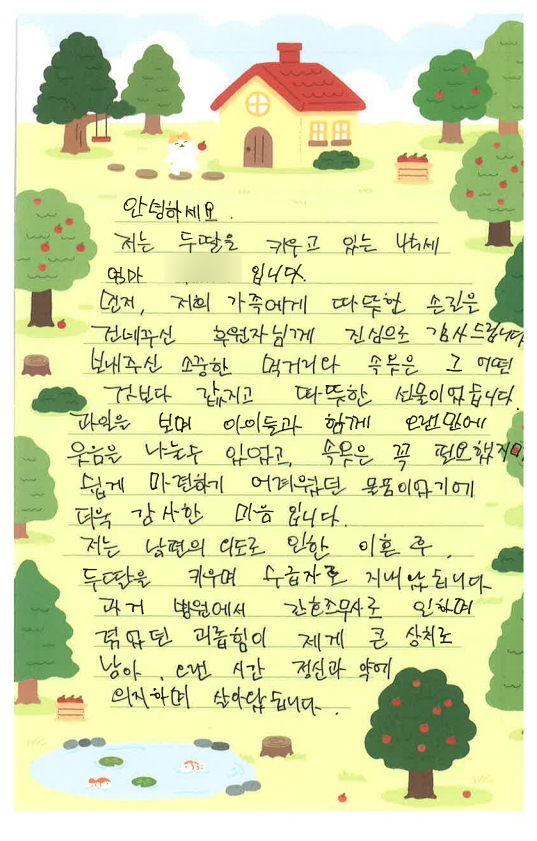 안녕하세요.
저는 두딸을 키우고 있는 45세
엄마 입니다.
먼저, 저희 가족에게 따뜻한 손길을
건네주신 후원자님께 진심으로 감사드립니다
보내주신 소중한 먹거리와 속옷은 그 어떤
것보다 값지고 따뜻한 선물이었습니다.
과일을 보며 아이들과 함께 오랜만에
웃음을 나눌수 있었고, 속옷은 꼭 필요했지만
쉽게 마련하기 어려웠던 물품이었기에
더욱 감사한 마음 입니다.
저는 남편의 외도로 인한 이혼 후,
두딸을 키우며 수급자로 지내왔습니다
과거 병원에서 간호조무사로 일하며
겪었던 괴롭힘이 제게 큰 상처로
남아, 오랜 시간 정신과 약에
의지하며 살아왔습니다.